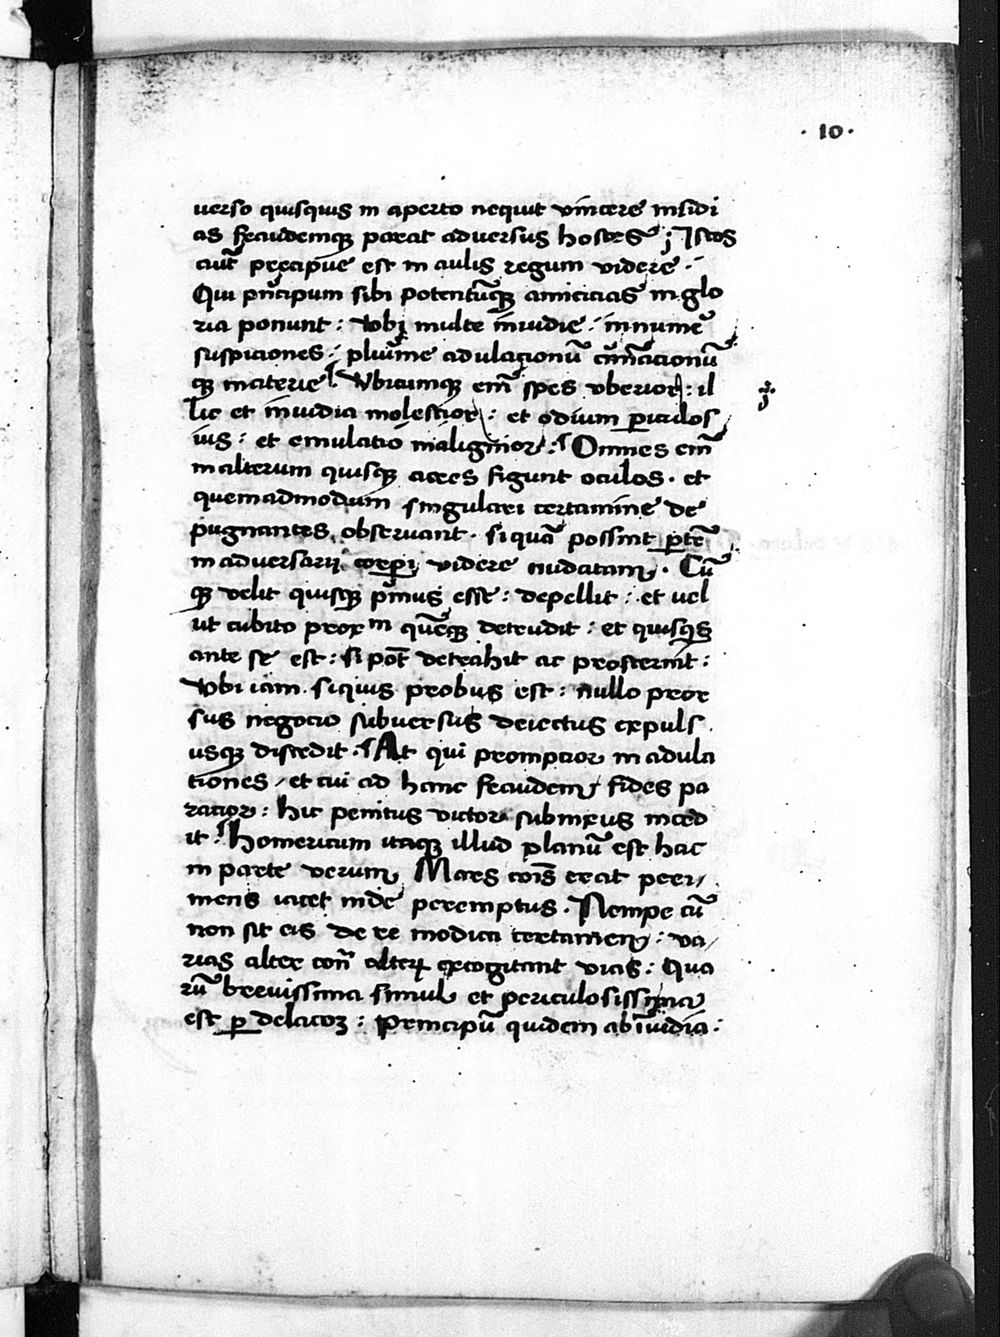 · 10 ·
uerso quisquis in aperto nequit vincere insidi
as fraudemq̨ parat adversus hostes ; Istos
aut̄ pręcipue est in aulis regum videre ·
Qui prīcipum sibi potentūq̨ amicicias in glo
ria ponunt : vbi multe īnuidie · innume᷒
suspiciones : plurīme adulacionū crīnacionū
q̨ materie Vbicumq̨ em̄ spes vberior : il
lic et inuidia molestior : et odium ꝑiculos
ius : et emulatio malignior : Omnes em̄
in alterum quisq̨ acres figunt oculos · et
quemadmodum singulari certamine de
pugnantes observant · si quā possint ꝑtē
in adversarij corꝑi videre nudatam · Cū
q̨ velit quisq̨ prīmus esse : depellit : et uel
ut cubito proxm quēq̨ detrudit : et quisqis
ante se est : si pot̄ detrahit ac prosternit :
Vbi iam siquis probus est : nullo pror
sus negocio subuersus deiectus expuls
usq̨ discedit · At qui promptior in adula
tiones / et cui ad hanc fraudem fides pa
ratior : hic penitus victor submixus inced
it : Homericum itaq̨ illud planū est hac
in parte verum Mars cōis erat peri
mens iacet inde peremptus · Nempe cū
non sit eis de re modica certamen : va
rias alter con̄ alterꝝ excogitant vias : Qua
rū breuissima simul et periculosissima
est ꝑ delatoꝫ : Principū quidem ab īuidia :